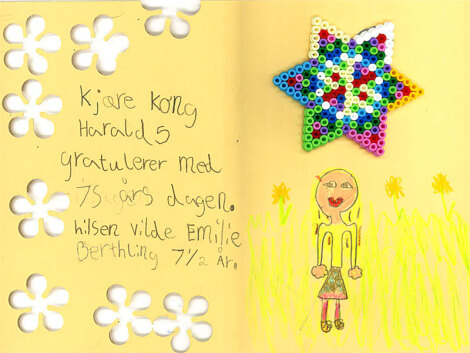 Kjære kong
Harald 5
gratulerer med
75 års dagen.
hilsen vilde Emilie
Berthling 7 1/2 År.